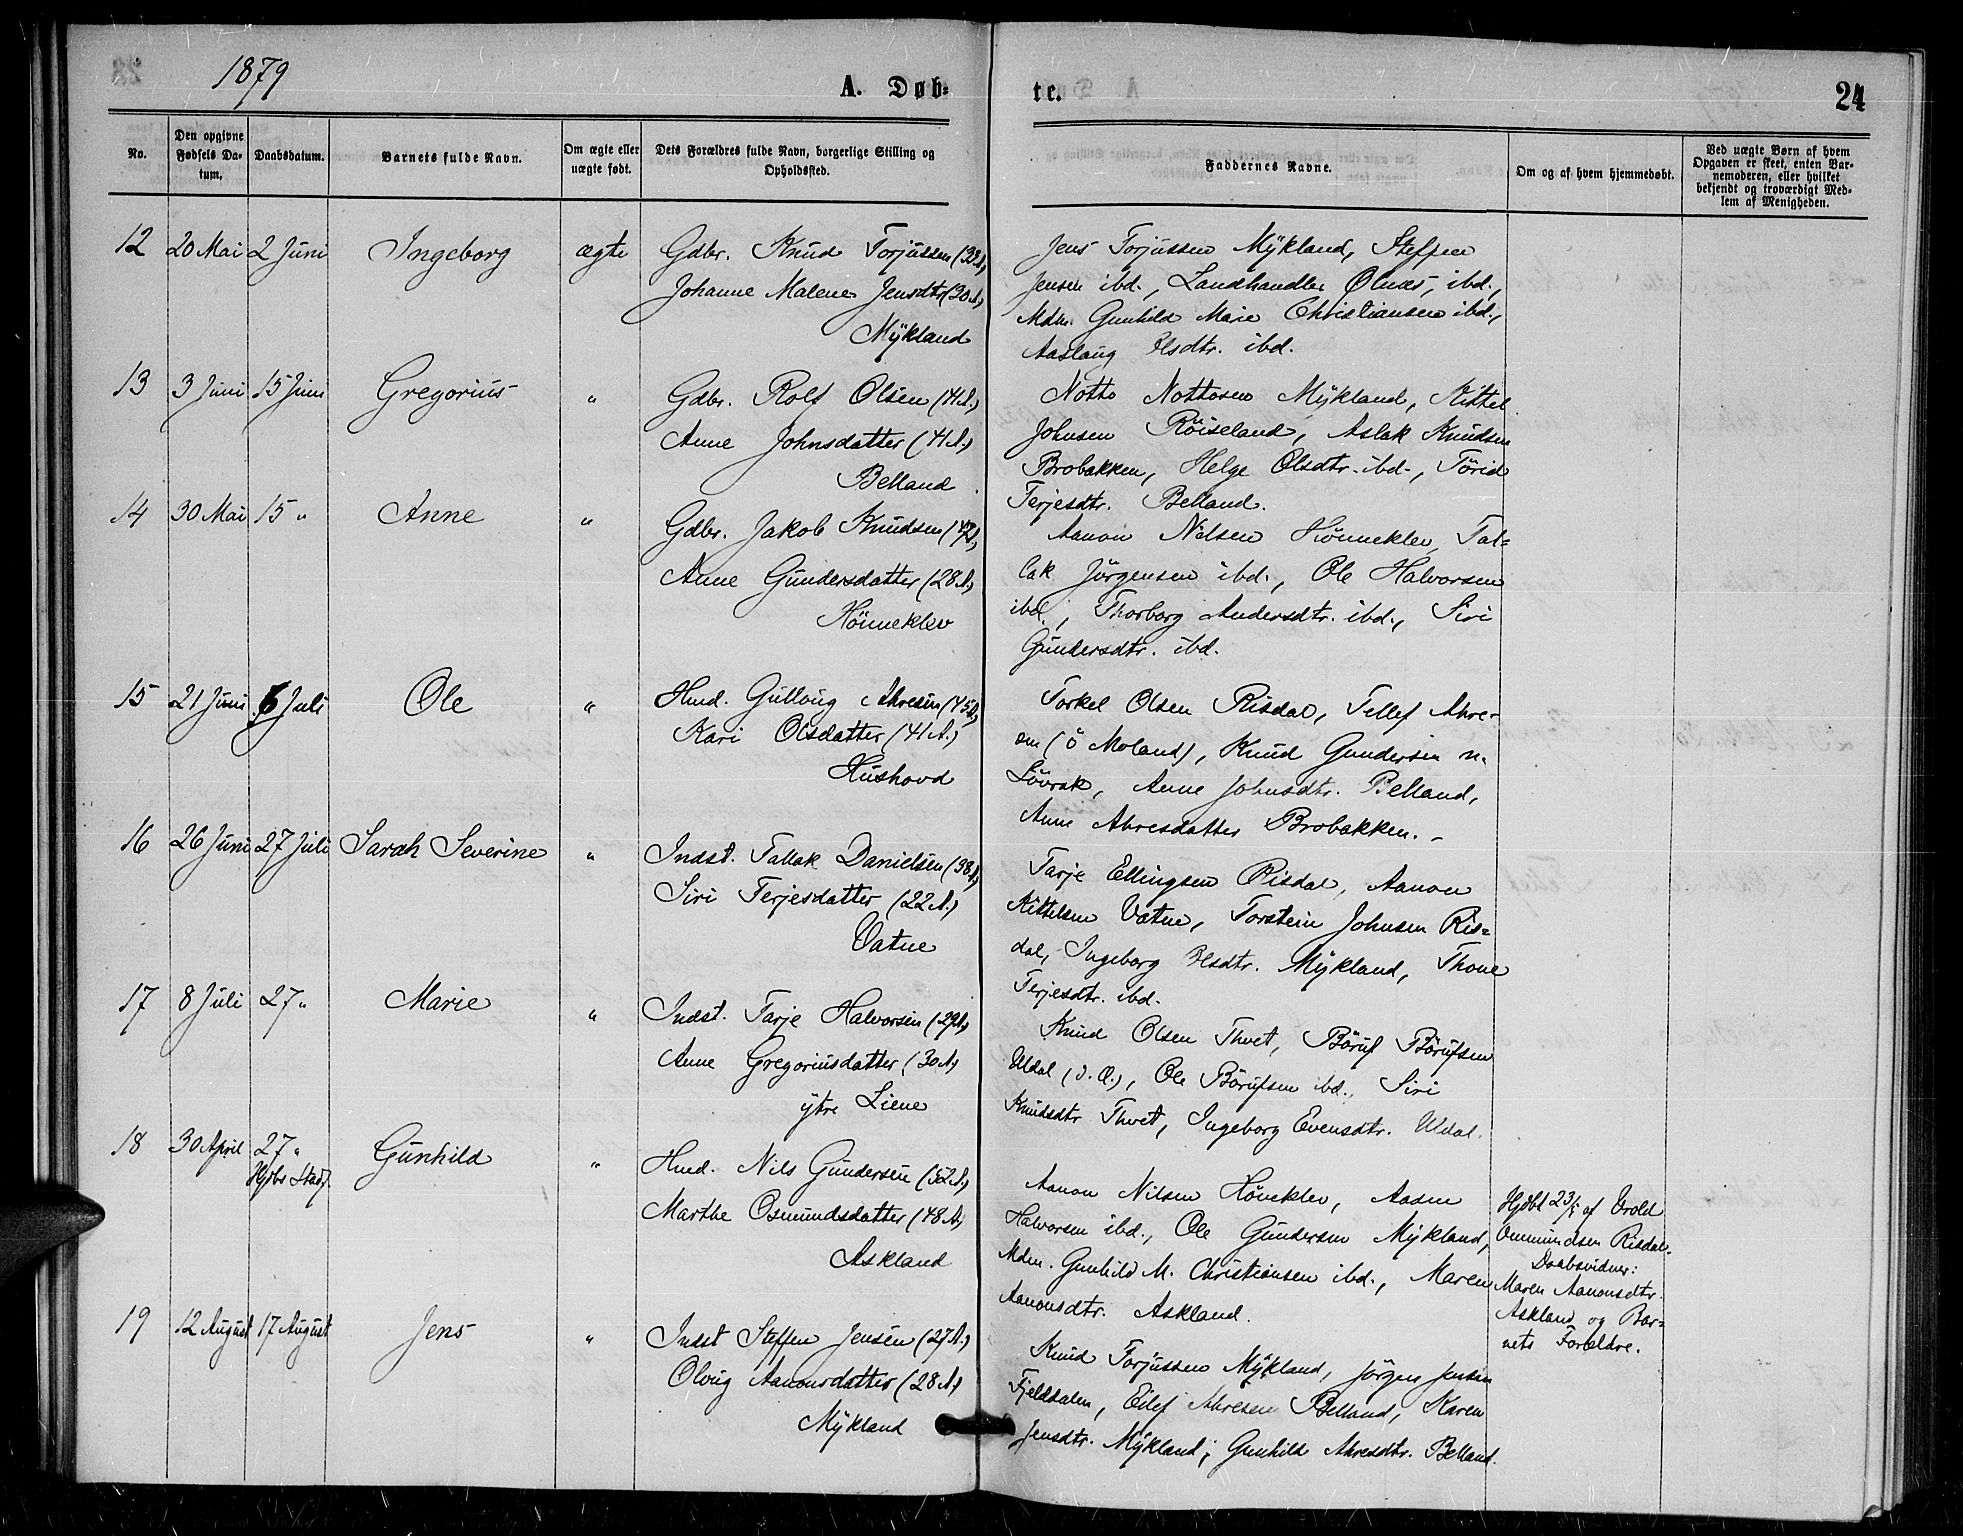 1879
A. Døb-
te.
24
No.
Den opgivne Fødsels Da-tum.
Daabsdatum.
Barnets fulde Navn.
Om ægte eller uægte født.
Dets Forældres fulde Navn, borgerlige Stilling og Opholdssted.
Faddernes Navne.
Om og af hvem hjemmedøbt.
Ved uægte Børn af hvem Opgaven er skeet, enten Bar-nemoderen, eller hvilket bekjendt og troværdigt Med-lem af Menigheden.
12 20 Mai 2 Juni Ingeborg ægte Gdbr. Knud Torjussen (33 A.)
Johanne Malene Jensdtr (30 A.)
Mÿkland
Jens Torjussen Mÿkland, Steffen
Jensen ibd., Landhandler Ølnæs, ibd.,
Mdm. Gunhild Marie Christiansen ibd.,
Aaslaug Olsdtr. ibd.
13 3 Juni 15 Juni Gregorius " Gdbr. Rolf Olsen (41 A.)
Anne Johnsdatter (41 A.)
Belland
Notto Nottosen Mÿkland, Kittel
Johnsen Röiseland, Aslak Knudsen
Brobakken, Helge Olsdtr. ibd., Törid
Terjesdtr. Belland.
14 30 Mai 15 " Anne " Gdbr. Jakob Knudsen (42 A.)
Anne Gundersdatter (28 A.)
Hönneklev
Aanon Nilsen Hönneklev, Tal=
lak Jörgensen ibd., Ole Halvorsen
ibd., Thorborg Andersdtr. ibd., Siri
Gundersdtr. ibd.
15 21 Juni 6 Juli Ole " Hmd. Gullvug Ahresen (45 A.)
Kari Olsdatter (41 A.)
Hushovd
Torkel Olsen Risdal, Tellef Ahre-
sen (ö Moland), Knud Gundersen n.
Lövrak, Anne Johnsdtr. Belland,
Anne Ahresdatter Brobakken. -
16 26 Juni 27 Juli Sarah Severine " Indst. Tallak Danielsen (38 A.)
Siri Terjesdatter (22 A.)
Vatne
Tarje Ellingsen Risdal, Aanon
Kittelsen Vatne, Torstein Johnsen Ris=
dal, Ingeborg Olsdtr. Mÿkland, Thone
Terjesdtr. ibd.
17 8 Juli 27 " Marie " Indst. Tarje Halvorsen (29 A.)
Anne Gregoriusdatter (30 A.)
ÿtre Liene
Knud Olsen Thvet, Böruf Börufsen
Uldal (), Ole Börufsen ibd., Siri
Knudsdtr Thvet, Ingeborg Evensdtr. Uldal.
18 30 April 27 " Gunhild " Hmd. Nils Gundersen (52 A.)
Hjdbs Stadf.
Marthe Osmundsdatter (48 A.)
Askland
Aanon Nilsen Höneklev, Aasen
Halvorsen ibd., Ole Gundersen Mÿkland,
Mdm. Gunhild M. Christiansen ibd., Maren
Aanonsdtr. Askland.
Hjdbt 23/5 af Erold
Ommundsen Risdal.
Daabsvidner:
Maren Aanonsdtr.
Askland og Bar=
nets Forældre.
19 12 August 17 August Jens " Indst Steffen Jensen (27 A.)
Olvug Aanonsdatter (28 A.)
Mÿkland
Knud Torjussen Mÿkland, Jörgen Jensen
Fjeldsdalen, Eilef Ahresen Belland, Karen
Jensdtr. Mÿkland, Gunhild Ahresdtr. Belland.